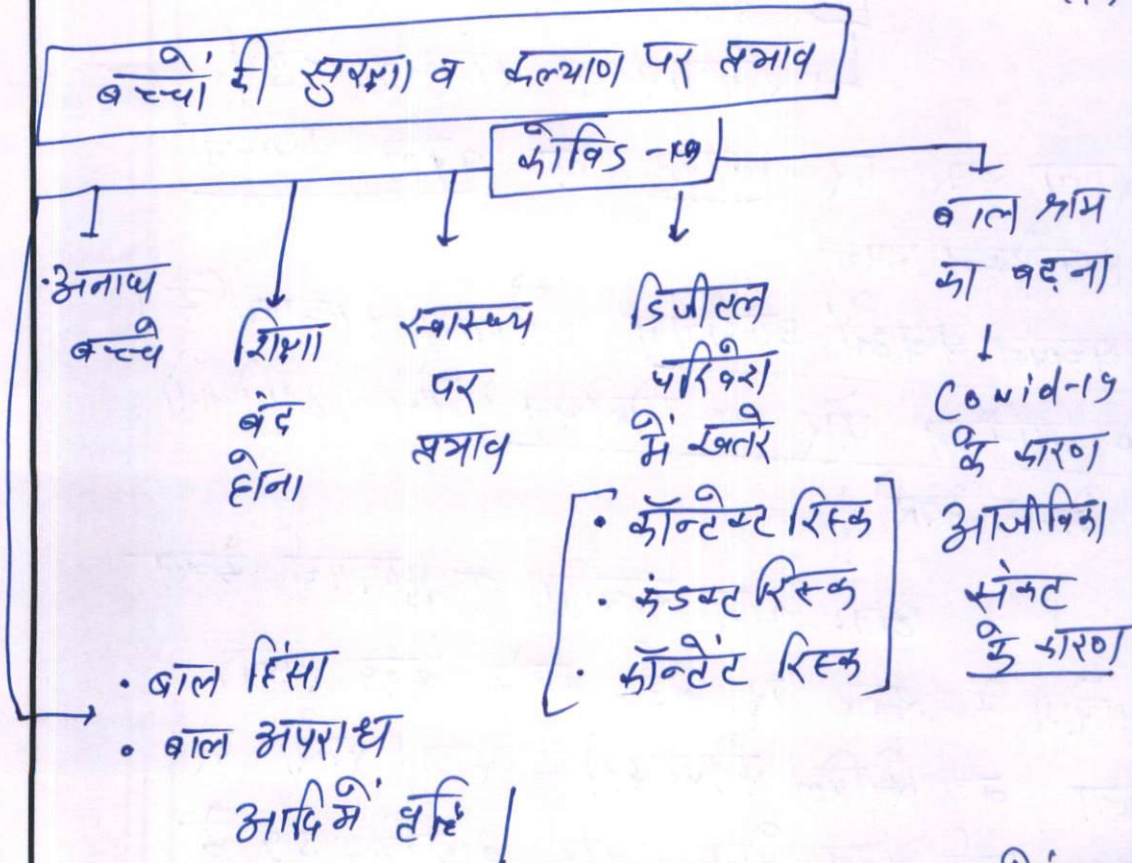 बच्चों की सुरक्षा व कल्याण पर प्रभाव
कोविड -19
अनाथ
बच्चे
शिक्षा
बंद
होना
स्वास्थ्य
पर
प्रभाव
डिजीटल
परिवेश
में खतरे
• कॉन्टेक्ट रिस्क
• कंडक्ट रिस्क
• कॉन्टेंट रिस्क
बाल श्रम
का बढ़ना
Covid-19
के कारण
आजीविका
संकट
के कारण
• बाल हिंसा
• बाल अपराध
आदि में वृद्धि